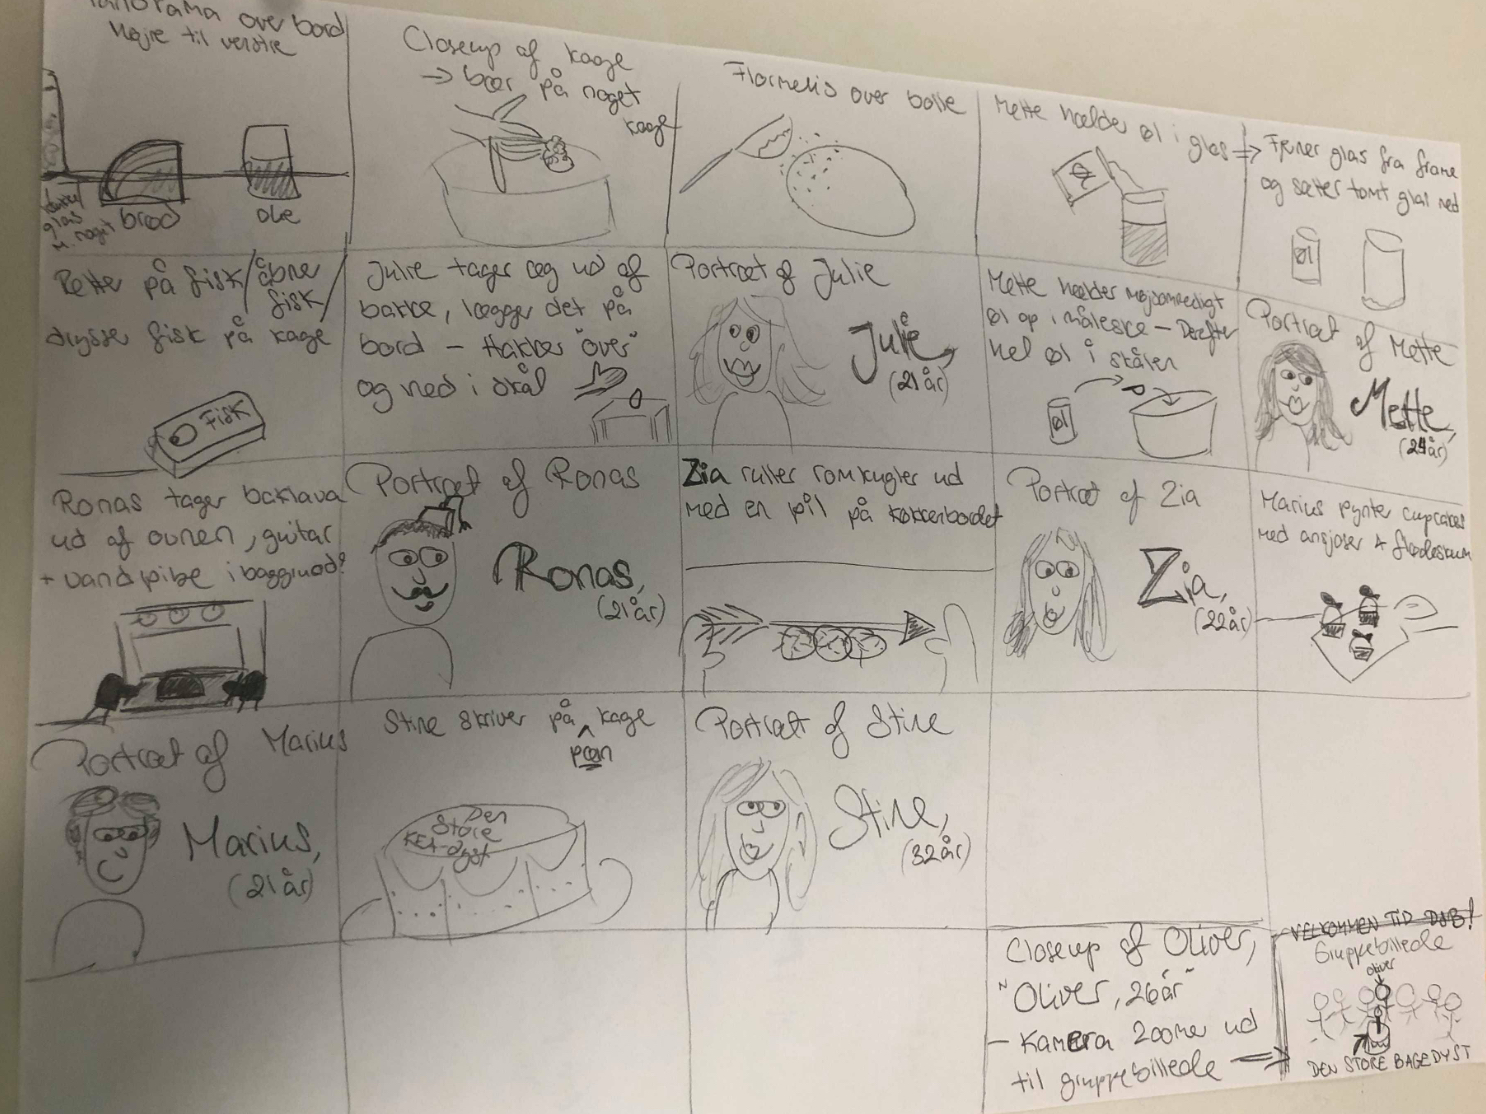 Panorama over bord
Højre til venstre
brød
olie
Closeup af kage
→ bær på noget
kage
Flormelis over bolle
Mette hælder øl i glas ⇒
Øl
Fjerner glas fra frame
og sætter tomt glas ned
Øl
Pette på fisk / åbne
fisk /
drysse fisk på kage
FISK
Julie tager æg ud af
bakke, lægger det på
bord - Hakker "over"
og ned i skål
Portræt af Julie
Julie,
(21 år)
Mette hælder møjsommeligt
øl op i måleske - Derefter
hel øl i skålen
Øl
Portræt af Mette
Mette,
(24 år)
Ronas tager baklava
ud af ovnen, guitar
+ vandpibe i baggrund?
Portræt af Ronas
Ronas,
(21 år)
Zia ruller romkugler ud
med en pil på køkkenbordet
Portræt af Zia
Zia,
(22 år)
Marius pynter cupcakes
med ansjoser + flødeskum
Portræt af Marius
Marius,
(21 år)
Stine skriver på kage
pæn
Den
Store
KEX-dyst
Portræt af Stine
Stine,
(32 år)
Closeup af Oliver,
"Oliver, 26 år"
- Kamera zoomer ud
til gruppebillede ⇒
VELKOMMEN TID DSB!
Gruppebillede
Oliver
DEN STORE BAGEDYST